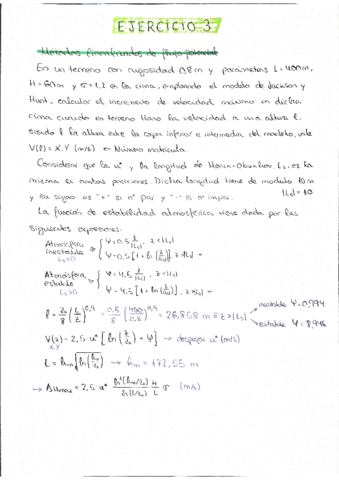 EJERCICIO 3
Métodos linealizados de flujo potencial
En un terreno con rugosidad 0,8 m y parámetros L = 400 m,
H = 60 m y σ = 1,2 en la cima, empleando el modelo de Jackson y
Hunt, calcular el incremento de velocidad máximo en dicha
cima cuando en terreno llano la velocidad a una altura l,
siendo l la altura entre la capa inferior e intermedia del modelo, vale
V(l) = X.Y (m/s) ← Número matrícula.
Considerar que la u* y la longitud de Monin-Obukhov, Ls, es la
misma en ambas posiciones. Dicha longitud tiene de módulo 10 m
y su signo es "+" si nº par y "-" si nº impar. |Ls| = 10
La función de estabilidad atmosférica viene dada por las
siguientes expresiones:
Atmósfera inestable Ls<0 { Ψ = 0,5 z/|Ls| , z<|Ls|
Ψ = 0,5 [1 + ln (z/|Ls|)] , z>|Ls| ←
Atmósfera estable Ls>0 { Ψ = 4,5 z/|Ls| , z<|Ls|
Ψ = 4,5 [1 + ln (z/|Ls|)] , z>|Ls| ←
l = z₀/8 (L/z₀)^0,9 = 0,8/8 (400/0,8)^0,9 = 26,858 m = z > |Ls| → inestable Ψ = 0,994
→ estable Ψ = 8,946
V(z) = 2,5 u* [ln (z/z₀) + Ψ] → despejar u* (m/s)
X.Y
L = hm √ln (hm/z₀) → hm = 172,55 m
→ ΔUmax = 2,5 u* ln²(hm/z₀)/ln(l/z₀) H/L σ (m/s)